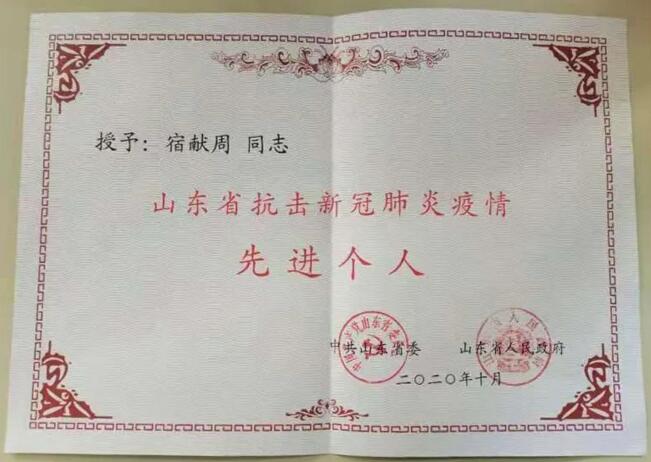 授予：宿献周 同志
山东省抗击新冠肺炎疫情
先进个人
中共山东省委 山东省人民政府
二〇二〇年十月